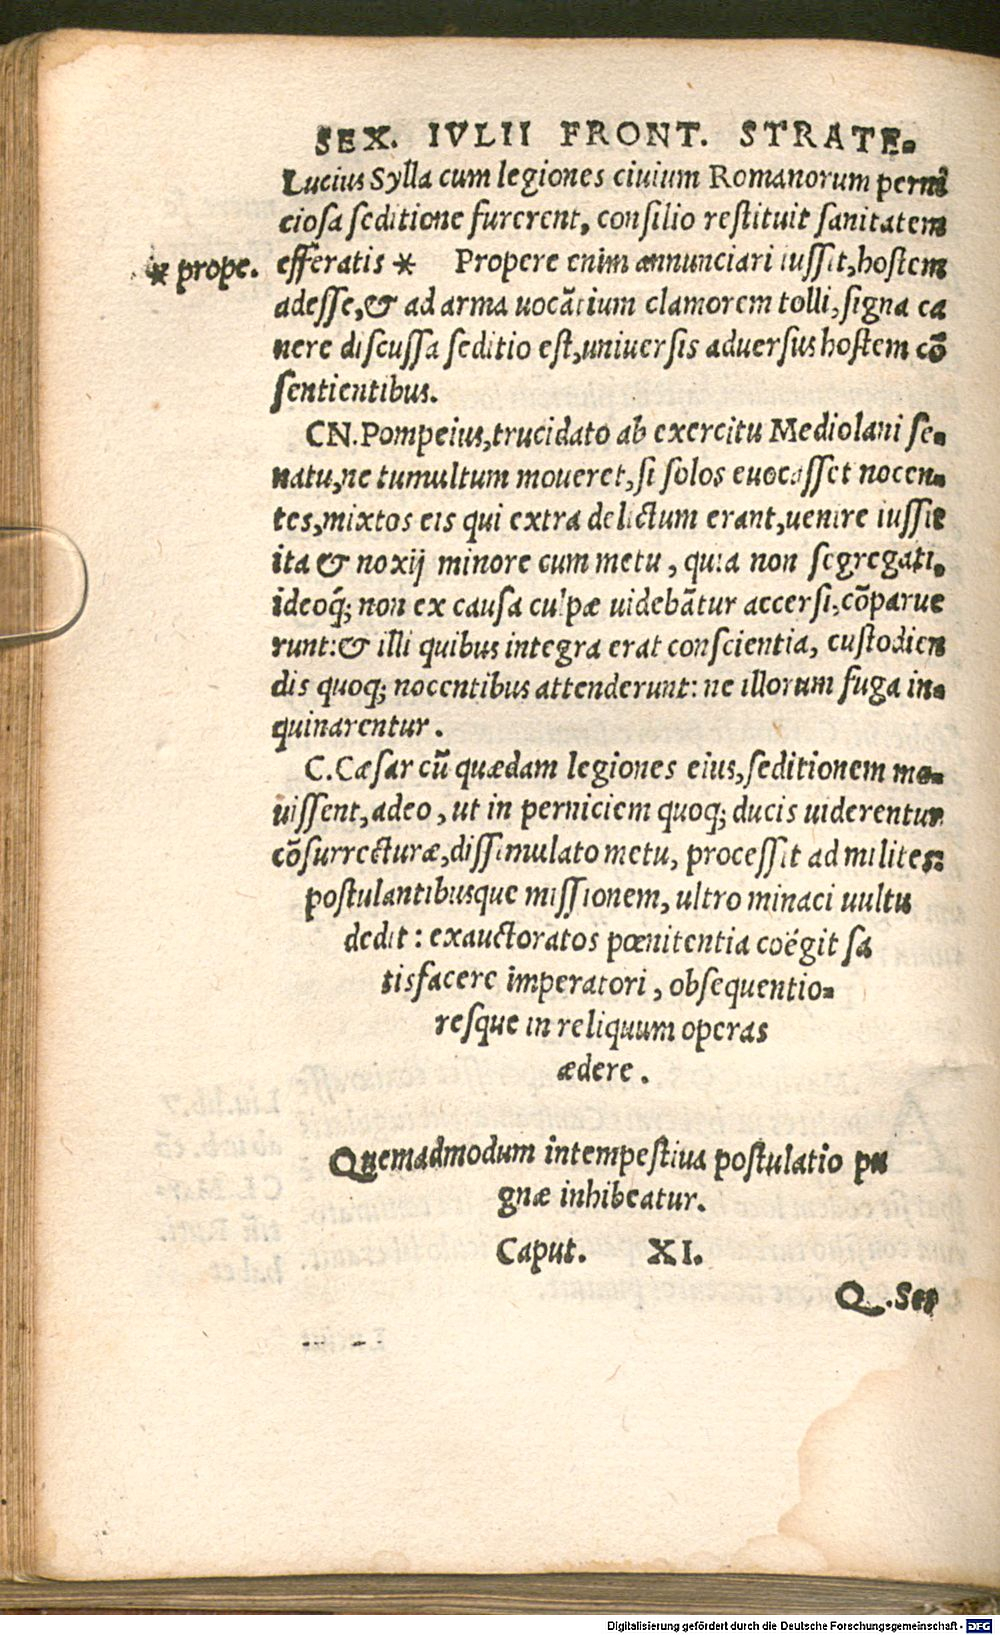 SEX. IVLII FRONT. STRATE-
Lucius Sylla cum legiones ciuium Romanorum perni
ciosa seditione furerent, consilio restituit sanitatem
* prope. efferatis * Propere enim annunciari iussit, hostem
adesse, & ad arma uocātium clamorem tolli, signa ca
nere discussa seditio est, uniuersis aduersus hostem cō
sentientibus.
CN. Pompeius, trucidato ab exercitu Mediolani se-
natu, ne tumultum moueret, si solos euocasset nocen-
tes, mixtos eis qui extra delictum erant, uenire iussit
ita & noxij minore cum metu, quia non segregati,
ideoq; non ex causa culpæ uidebātur accersi, cōparue
runt: & illi quibus integra erat conscientia, custodien
dis quoq; nocentibus attenderunt: ne illorum fuga in-
quinarentur.
C. Cæsar cū quædam legiones eius, seditionem mo-
uissent, adeo, ut in perniciem quoq; ducis uiderentur
cōsurrecturæ, dissimulato metu, processit ad milites:
postulantibusque missionem, ultro minaci uultu
dedit: exauctoratos pœnitentia coëgit sa
tisfacere imperatori, obsequentio-
resque in reliquum operas
ædere.
Quemadmodum intempestiua postulatio pu
gnæ inhibeatur.
Caput. XI.
Q. Ser
Digitalisierung gefördert durch die Deutsche Forschungsgemeinschaft - DFG